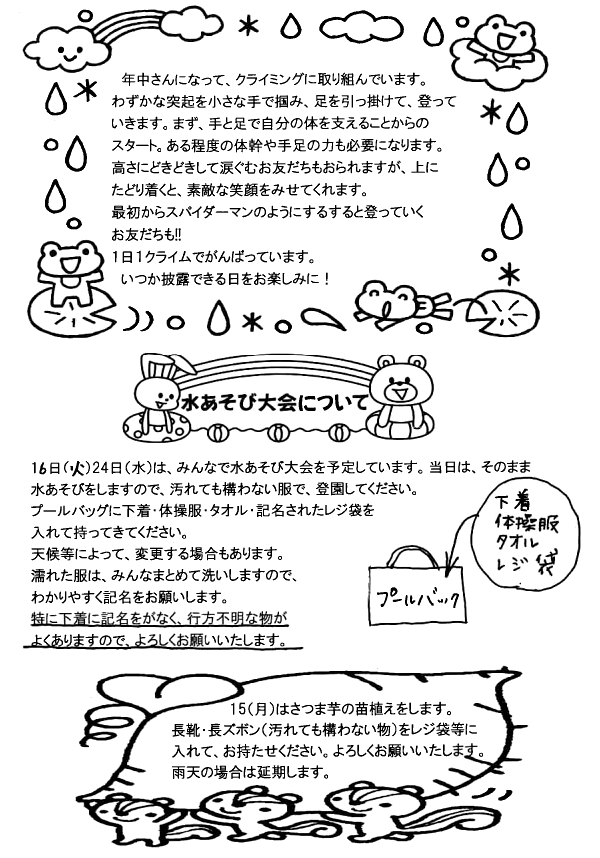 年中さんになって、クライミングに取り組んでいます。
わずかな突起を小さな手で掴み、足を引っ掛けて、登って
いきます。まず、手と足で自分の体を支えることからの
スタート。ある程度の体幹や手足の力も必要になります。
高さにどきどきして涙ぐむお友だちもおられますが、上に
たどり着くと、素敵な笑顔をみせてくれます。
最初からスパイダーマンのようにするすると登っていく
お友だちも!!
1日1クライムでがんばっています。
いつか披露できる日をお楽しみに!
水あそび大会について
16日(火)24日(水)は、みんなで水あそび大会を予定しています。当日は、そのまま
水あそびをしますので、汚れても構わない服で、登園してください。
プールバッグに下着・体操服・タオル・記名されたレジ袋を
入れて持ってきてください。
天候等によって、変更する場合もあります。
濡れた服は、みんなまとめて洗いしますので、
わかりやすく記名をお願いします。
特に下着に記名をがなく、行方不明な物が
よくありますので、よろしくお願いいたします。
下着
体操服
タオル
レジ袋
プールバック
15(月)はさつま芋の苗植えをします。
長靴・長ズボン(汚れても構わない物)をレジ袋等に
入れて、お持たせください。よろしくお願いいたします。
雨天の場合は延期します。